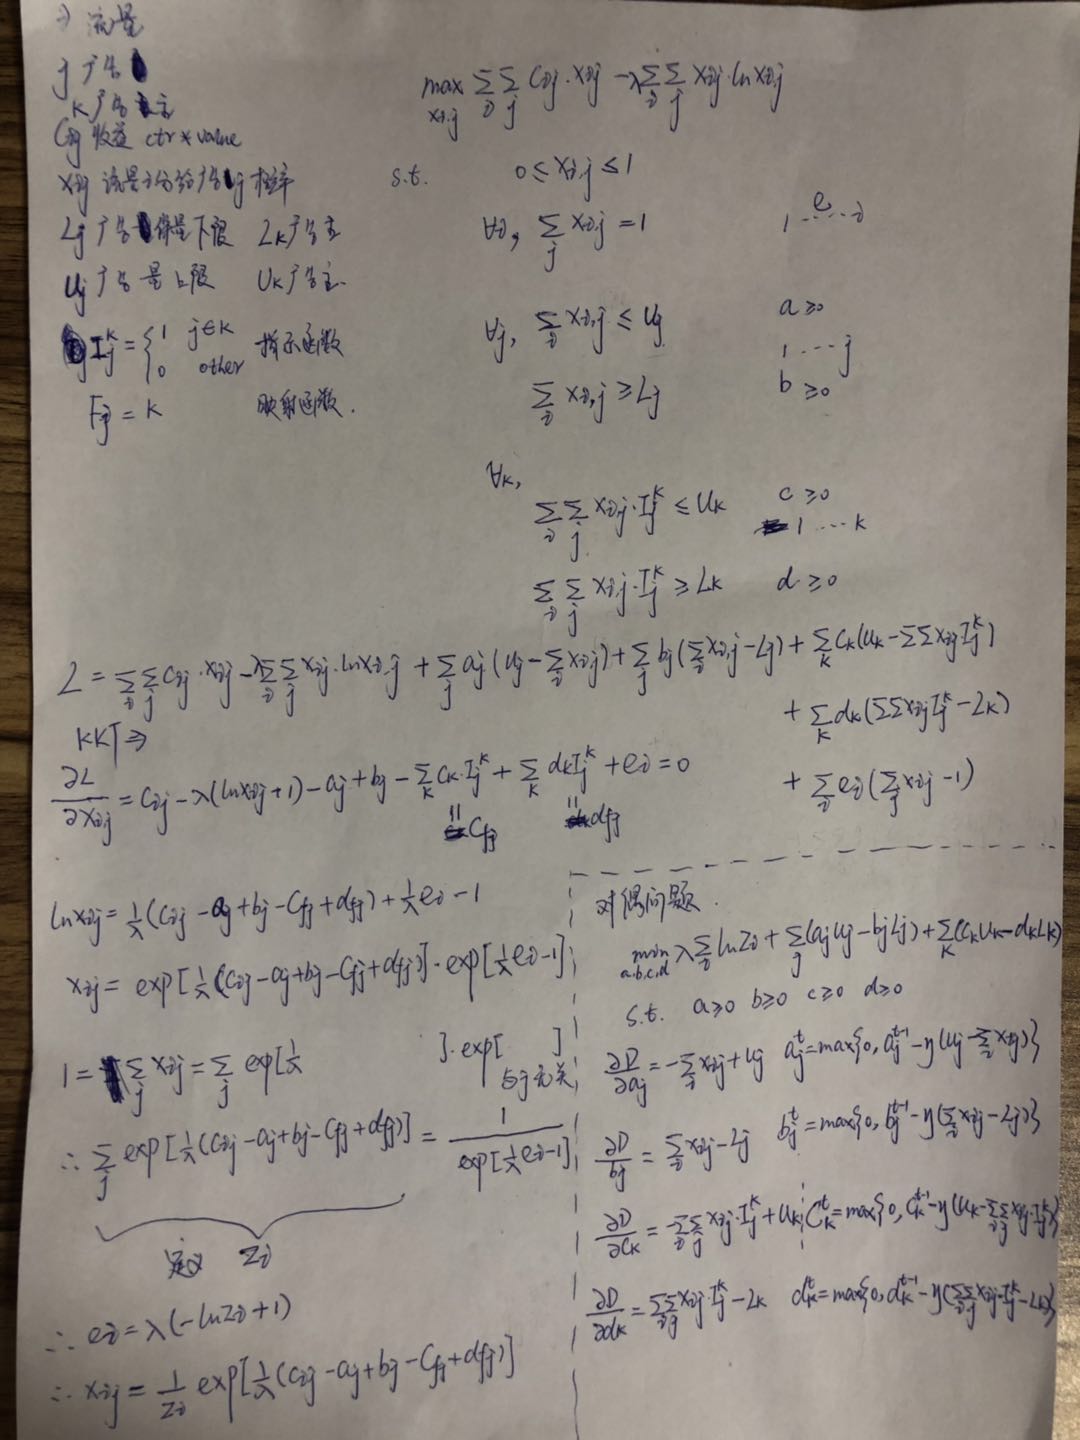 i 流量
j 广告
k 广告主
C_ij 收益 ctr * value
x_ij 该流量i分给广告j 概率
L_j 广告保量下限 L_k 广告主
U_j 广告量上限 U_k 广告主.
I_j^k = { 1 j∈k 0 other 指示函数
F_j = k 映射函数.
max_{x_i,j} Σ_i Σ_j C_ij · x_ij − λ Σ_i Σ_j x_ij · ln x_i,j
s.t. 0 ≤ x_i,j ≤ 1
∀i, Σ_j x_i,j = 1 e 1 ---- i
∀j, Σ_i x_i,j ≤ U_j a ≥ 0
1 ---- j
Σ_i x_i,j ≥ L_j b ≥ 0
∀k,
Σ_i Σ_j x_i,j · I_j^k ≤ U_k c ≥ 0
1 ---- k
Σ_i Σ_j x_i,j · I_j^k ≥ L_k d ≥ 0
L = Σ_i Σ_j C_ij · x_ij − λ Σ_i Σ_j x_ij · ln x_i,j + Σ_j a_j (U_j − Σ_i x_ij) + Σ_j b_j (Σ_i x_i,j − L_j) + Σ_k C_k (U_k − ΣΣ x_ij I_j^k)
+ Σ_k d_k (ΣΣ x_ij I_j^k − L_k)
+ Σ_i e_i (Σ_j x_ij − 1)
KKT ⇒
∂L/∂x_i,j = C_ij − λ(ln x_ij + 1) − a_j + b_j − Σ_k C_k · I_j^k + Σ_k d_k I_j^k + e_i = 0
|| C_fj || d_fj
ln x_ij = 1/λ (C_ij − a_j + b_j − C_fj + d_fj) + 1/λ e_i − 1
x_ij = exp[1/λ (C_ij − a_j + b_j − C_fj + d_fj)] · exp[1/λ e_i − 1]
1 = Σ_j x_ij = Σ_j exp[1/λ ] · exp[ ]
与j无关
∴ Σ_j exp[1/λ (C_ij − a_j + b_j − C_fj + d_fj)] = 1 / exp[1/λ e_i − 1]
定义 Z_i
∴ e_i = λ(−ln Z_i + 1)
∴ x_ij = 1/Z_i exp[1/λ (C_ij − a_j + b_j − C_fj + d_fj)]
对偶问题.
min_{a.b.c.d} λ Σ_i ln Z_i + Σ_j (a_j U_j − b_j L_j) + Σ_k (C_k U_k − d_k L_k)
s.t. a≥0 b≥0 c≥0 d≥0
∂D/∂a_j = −Σ_i x_ij + U_j a_j^t = max{0, a_j^{t-1} − η(U_j − Σ_i x_ij)}
∂D/b_j = Σ_i x_ij − L_j b_j^t = max{0, b_j^{t-1} − η(Σ_i x_ij − L_j)}
∂D/∂C_k = −Σ_i Σ_j x_ij · I_j^k + U_k C_k^t = max{0, C_k^{t-1} − η(U_k − Σ_i Σ_j x_ij · I_j^k)}
∂D/∂d_k = Σ_i Σ_j x_ij · I_j^k − L_k d_k^t = max{0, d_k^{t-1} − η(Σ_i Σ_j x_ij · I_j^k − L_k)}